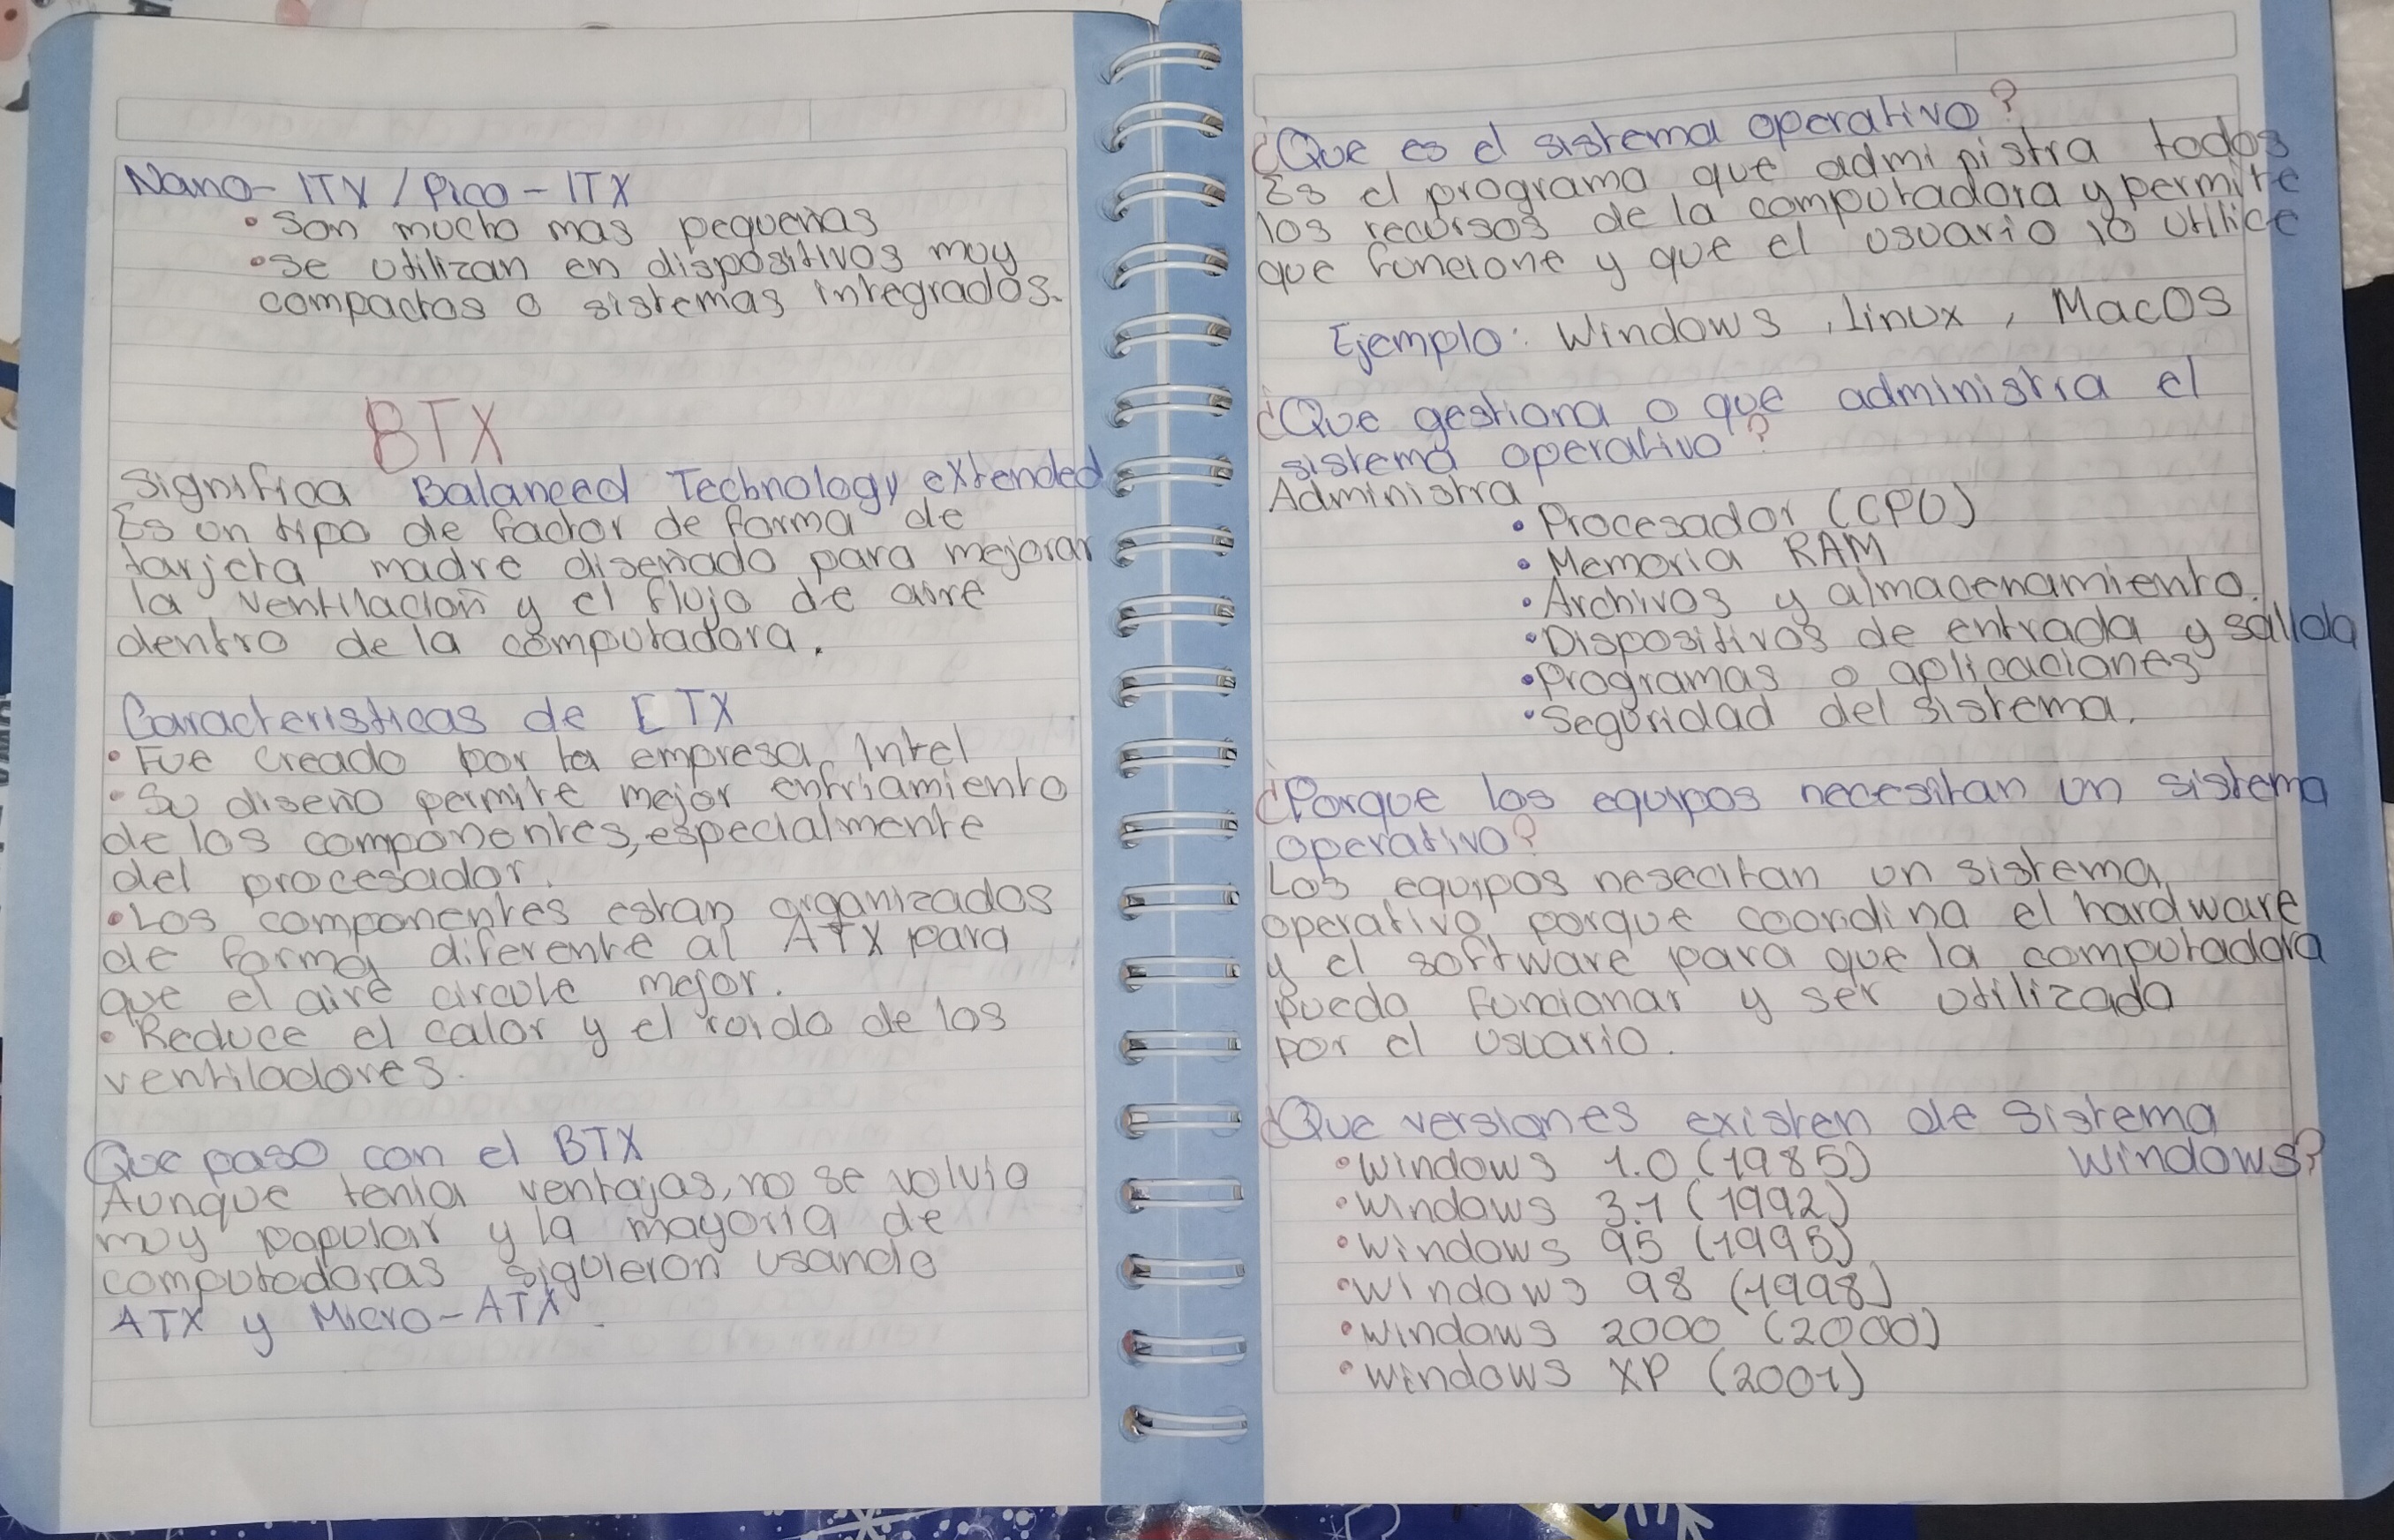 Nano-ITX / Pico-ITX
• Son mucho mas pequeñas
• Se utilizan en dispositivos muy
compactos o sistemas integrados.
BTX
Significa Balanced Technology extended
Es un tipo de factor de forma de
tarjeta madre diseñado para mejorar
la ventilacion y el flujo de aire
dentro de la computadora.
Caracteristicas de ETX
• Fue creado por la empresa Intel
• Su diseño permite mejor enfriamiento
de los componentes, especialmente
del procesador.
• Los componentes estan organizados
de forma diferente al ATX para
que el aire circule mejor.
• Reduce el calor y el roido de los
ventiladores.
Que paso con el BTX
Aunque tenia ventajas, no se volvio
muy popular y la mayoria de
computadoras siguieron usando
ATX y Micro-ATX.
¿Que es el sistema operativo?
Es el programa que administra todos
los recursos de la computadora y permite
que funcione y que el usuario lo utilice
Ejemplo: Windows, Linux, MacOS
¿Que gestiona o que administra el
sistema operativo?
Administra
• Procesador (CPU)
• Memoria RAM
• Archivos y almacenamiento.
• Dispositivos de entrada y salida
• Programas o aplicaciones
• Seguridad del sistema.
¿Porque los equipos necesitan un sistema
operativo?
Los equipos nesecitan un sistema
operativo porque coordina el hardware
y el software para que la computadora
pueda funcionar y ser utilizada
por el usuario.
¿Que versiones existen de sistema
Windows?
• Windows 1.0 (1985)
• Windows 3.1 (1992)
• Windows 95 (1995)
• Windows 98 (1998)
• Windows 2000 (2000)
• Windows XP (2001)